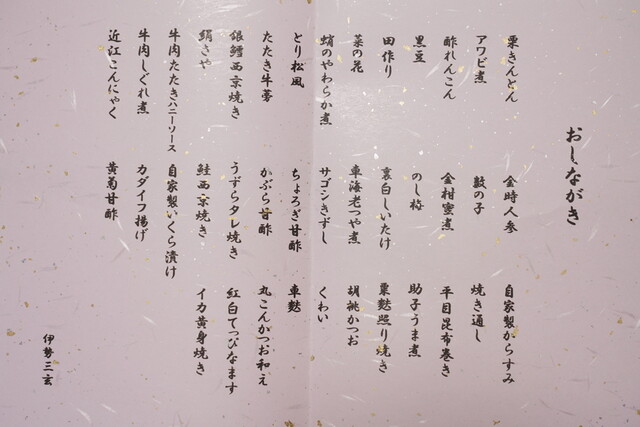 おしながき
栗きんとん
金時人参
自家製からすみ
アワビ煮
数の子
焼き通し
酢れんこん
金柑蜜煮
平目昆布巻き
黒豆
のし梅
助子うま煮
田作り
裏白しいたけ
粟麩照り焼き
菜の花
車海老つや煮
胡桃かつお
蛸のやわらか煮
サゴシきずし
くわい
とり松風
ちょろぎ甘酢
車麩
たたき牛蒡
かぶら甘酢
丸こんかつお和え
銀鱈西京焼き
うずらタレ焼き
紅白てっぴなます
絹さや
鮭西京焼き
イカ黄身焼き
牛肉たたきハニーソース
自家製いくら漬け
牛肉しぐれ煮
カダイフ揚げ
近江こんにゃく
黄菊甘酢
伊勢三玄